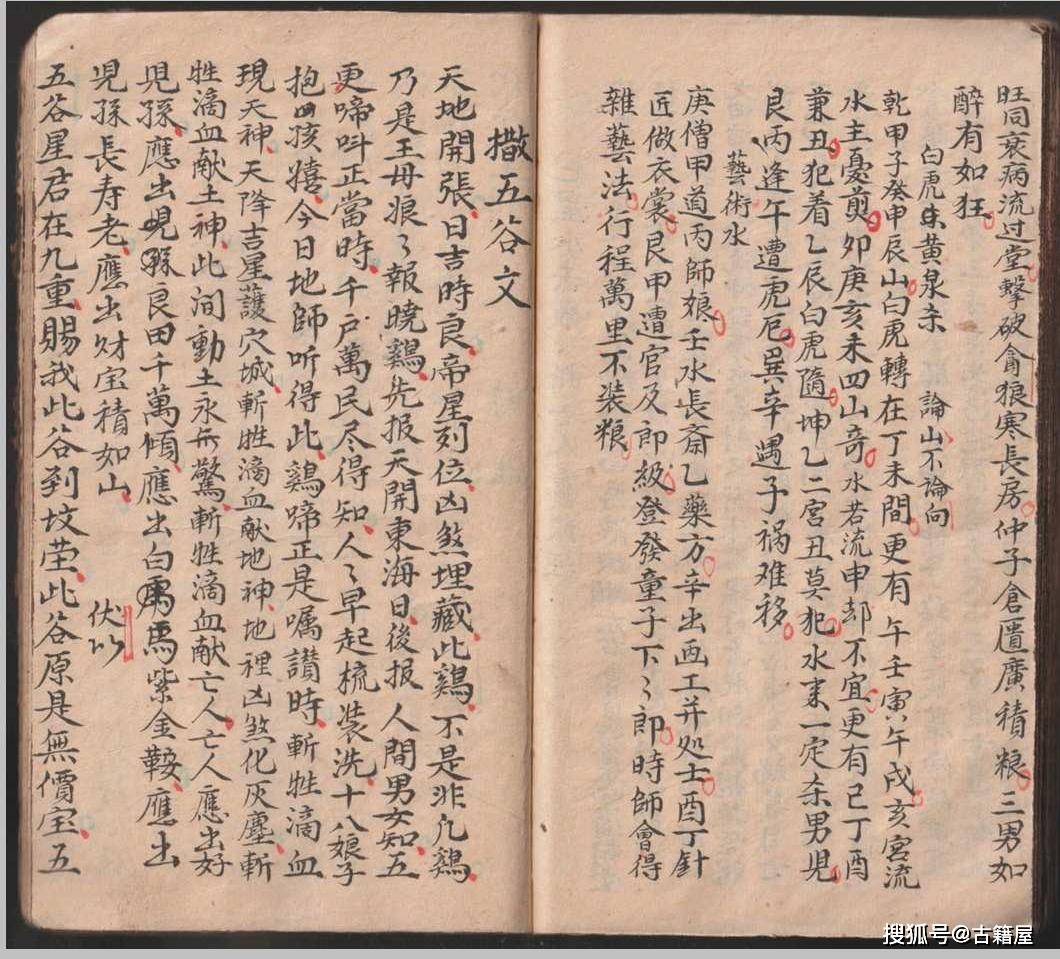 旺同衰病流过堂擊破禽狼寒長房仲子倉匱廣積粮三男如
醉有如狂
白虎朱黄泉杀 論山不論向
乾甲子癸申辰山白虎轉在丁未間更有午壬寅午戌亥宮流
水主憂煎卯庚亥未四山奇水若流申却不宜更有己丁酉
兼丑犯着乙辰白虎隨坤乙二宮丑莫犯水来一定杀男児
艮丙逢午遭虎厄巽辛遇子禍难移
藝術水
庚僧甲道丙師娘壬水長斎乙藥方辛出画工并処士酉丁針
匠做衣裳艮甲遭官及郎級登發童子下〻郎時師會得
雜藝法行程萬里不裝粮
撒五谷文
天地開張日吉時良帝星列位凶煞埋藏此鷄不是非凡鷄
乃是王母娘〻報曉鷄先报天開東海日後报人間男女知五
更啼呌正當時千戸萬民尽得知人〻早起梳裝洗十八娘子
抱㘝孩嬉今日地師听得此鷄啼正是嘱讃時斬牲滴血
現天神天降吉星護穴城斬牲滴血献地神地裡凶煞化灰塵斬
牲滴血献土神此洞動土永无驚斬牲滴血献亡人亡人應出好
児孫應出児孫良田千萬傾應出白馬紫金鞍應出
児孫長寿老應出财宝積如山 伏以
五谷星君在九重賜我此谷到坟茔此谷原是無價宝五
搜狐号@古籍屋